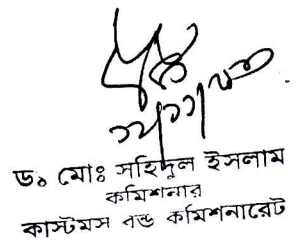 ড. মোঃ সহিদুল ইসলাম
কমিশনার
কাস্টমস বন্ড কমিশনারেট